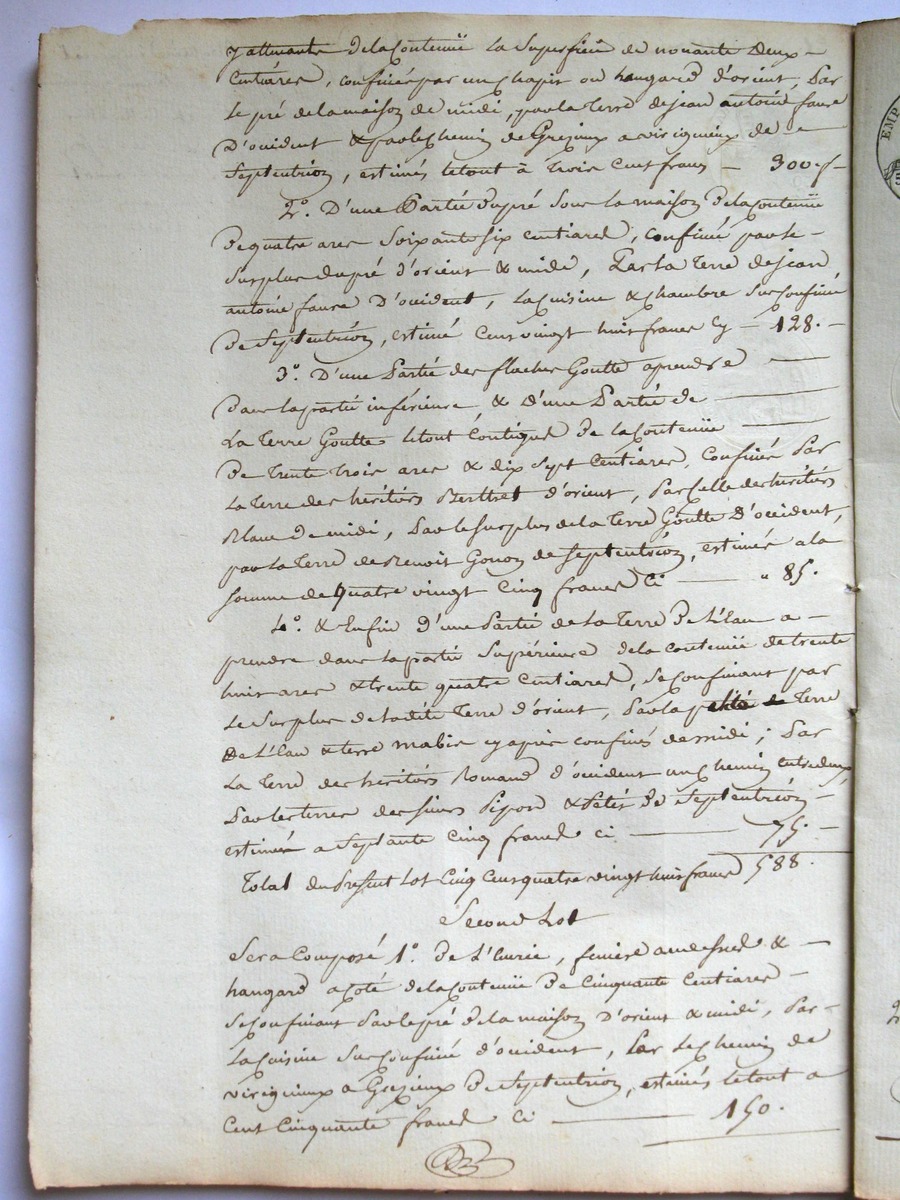 y attenante de la Contenüe la Superficie de nonante deux
Centiares, confinée par un chapit ou hangard d'orient, Par
le pré de la maison de midi, par la Terre de jean antoine faure
D'occident & par le chemin de Grezieux a viricigneux de
Septentrion, estimés le tout à Trois Cent francs — 300 f —
2°. D'une Partie du pré Sous la maison De la Contenüe
De quatre ares Soixante six Centiares, confiné par le
Surplus du pré d'orient & midi, Par la Terre de jean
antoine faure D'occident, la Cuisine & chambre Sus Confiné
De Septentrion, estimé Cent vingt huit francs Cy — 128. —
3°. D'une Partie des flaches Goutte a prendre
Dans la partie inférieure & D'une Partie de
La Terre Goutte le tout Contigue De la Contenüe
De Trente Trois ares & dix Sept Centiares, Confinés Par
La Terre des héritiers Berthet d'orient, Par Celle des héritiers
Blanc De midi, Par le Surplus de la Terre Goutte D'occident,
par la Terre de Benoit Gonon de Septentrion, estimés a la
Somme de Quatre vingt Cinq francs Ci — " 85.
4°. & Enfin d'une Partie de la Terre De L'Etau a
prendre dans la partie Supérieure de la contenüe de trente
huit ares & trente quatre Centiares, Se Confinant par
Le Surplus de ladite Terre d'orient, Par la petite Terre
De L'Etau & terre mabie cy après confinés de midi; Par
La Terre des héritiers Romand d'occident un Chemin entre deux
Par les terres des Sieurs Pipon & Petit De Septentrion
estimée a Septante Cinq francs ci — 75. —
Total du Present Lot Cinq Cent quatre vingt huit francs 588.
Second Lot
Sera Composé 1°. De L'Ecurie, feniere au dessus &
hangard a Coté de la Contenüe De Cinquante Centiares
Se Confinant Par le pré De la maison D'orient & midi, Par
La Cuisine Sus Confiné d'occident, Par Le Chemin de
viricigneux a Grezieux De Septentrion, estimés le tout a
Cent Cinquante francs Ci — 150.
EMP